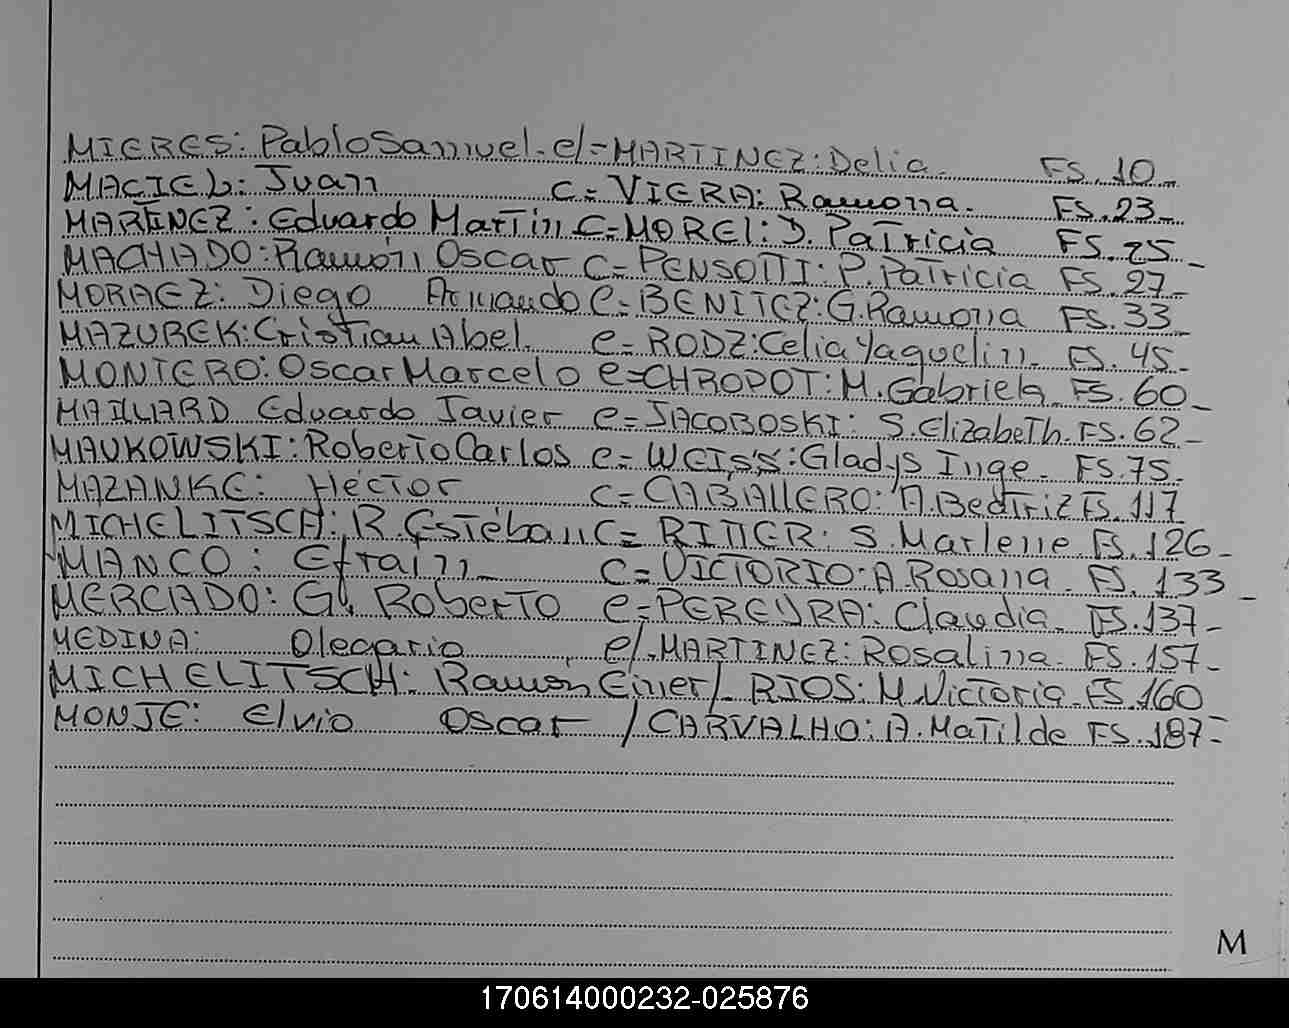 MIERES: Pablo Samuel. c/= MARTINEZ: Delia. FS. 10_
MACIEL: Juan C= VIERA: Ramona. FS. 23_
MARTINEZ: Eduardo Martin C= MOREL: D. Patricia FS. 25_
MACHADO: Ramón Oscar C= PENSOTTI: P. Patricia FS. 27_
MORAEZ: Diego Armando C= BENITEZ: G. Ramona FS. 33_
MAZUREK: Cristian Abel. C= RODZ: Celia Yaquelin. FS. 45_
MONTERO: Oscar Marcelo C= CHROPOT: M. Gabriela FS. 60_
MAILLARD Eduardo Javier C= JACOBOSKI: S. Elizabeth. FS. 62_
MAUKOWSKI: Roberto Carlos C= WEISS: Gladys Inge_ FS. 75_
MAZANKE: Héctor C= CABALLERO: A. Beatriz FS. 117
MICHELITSCH: R. Estéban C= RITTER: S. Marlene FS. 126_
MIANCO: Efraín_ C= VICTORIO: A. Rosana_ FS. 133_
MERCADO: G. Roberto C= PEREYRA: Claudia_ FS. 137_
MEDINA: Olegario C/. MARTINEZ: Rosalina. FS. 157_
MICHELITSCH: Ramón Einer/_ RIOS: M. Victoria. FS. 160
MONJE: Elvio Oscar / CARVALHO: A. Matilde FS. 187_
M
170614000232-025876